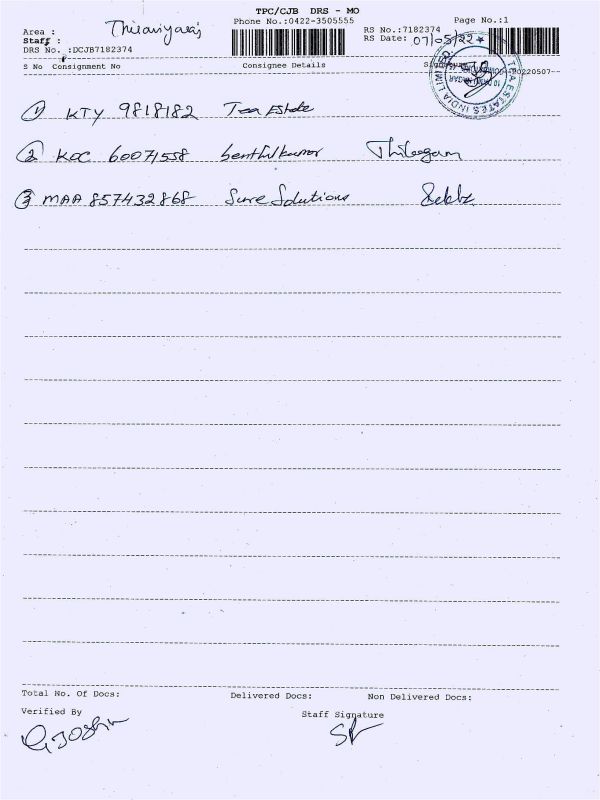 TPC/CJB DRS - MO
Phone No.:0422-3505555
Page No.:1
Area :
Staff :
DRS No. :DCJB7182374
RS No.:7182374
RS Date: 07/05/22
S No Consignment No Consignee Details
TEA ESTATES INDIA LIMITED
1 KTY 9818182 Tea Estate
2 KOC 60071558 Senthilkumar Thilagam
3 MAA 857432868 Sure Solutions
Total No. Of Docs: Delivered Docs: Non Delivered Docs:
Verified By
Staff Signature